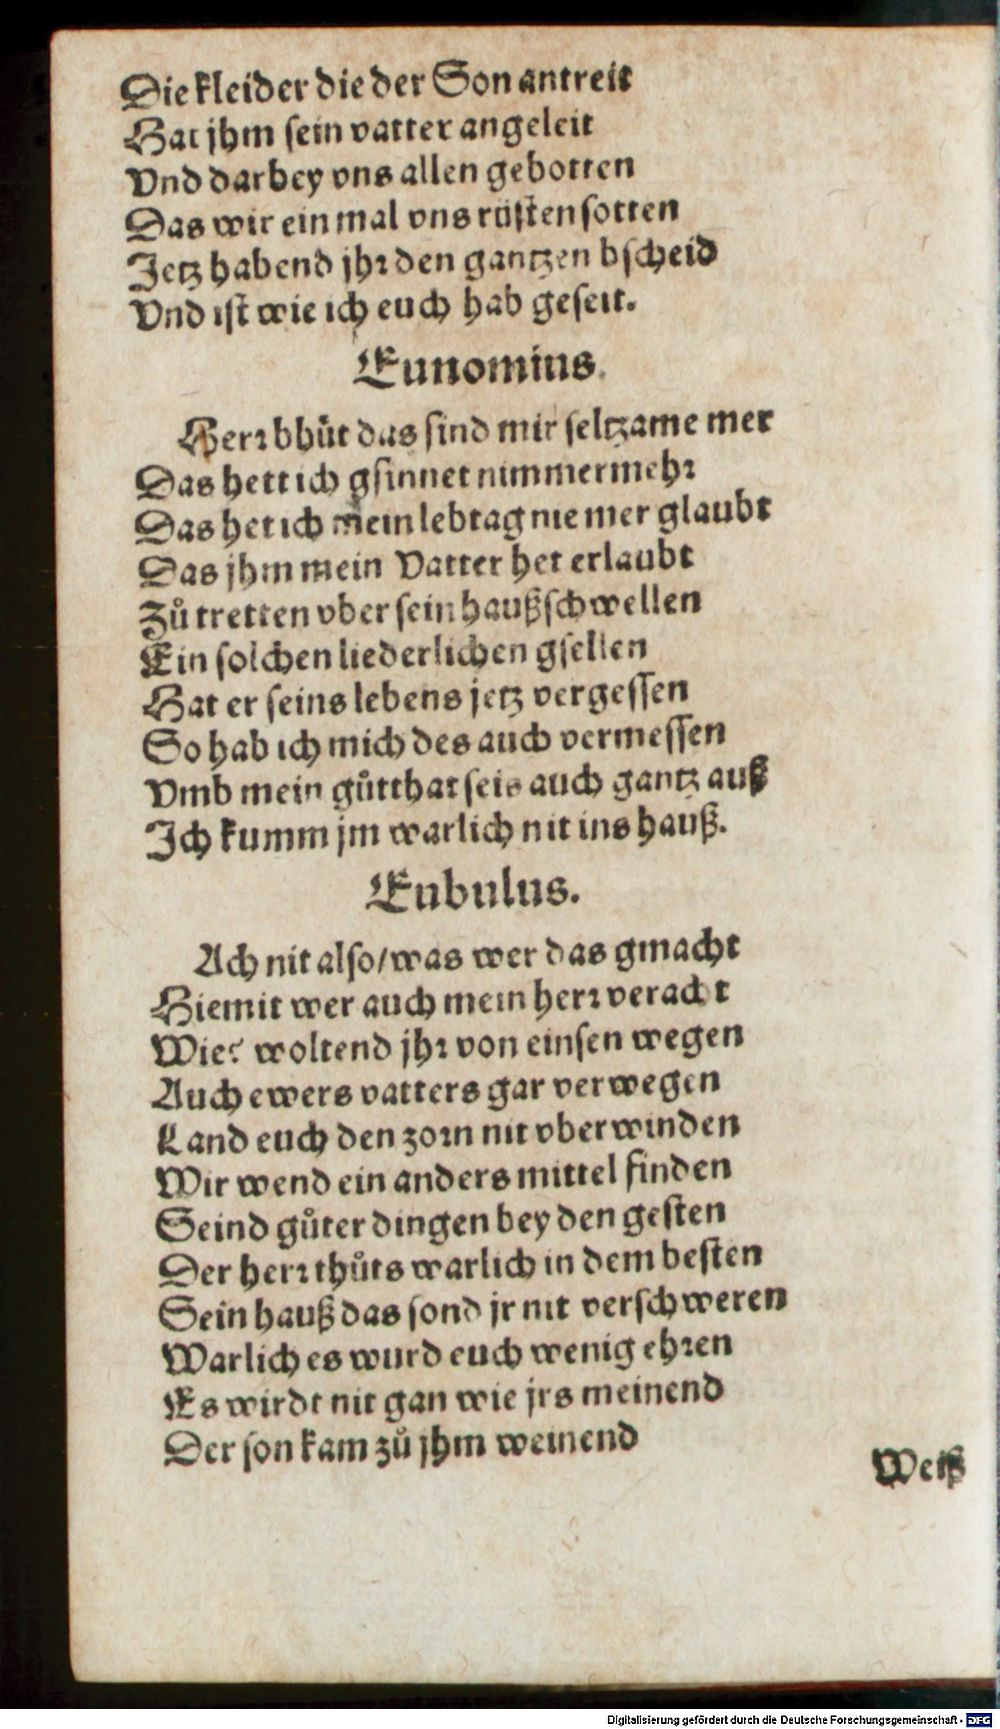 Die kleider die der Son antreit
Hat jhm sein vatter angeleit
Vnd darbey vns allen gebotten
Das wir ein mal vns rüsten sotten
Jetz habend jhr den gantzen bscheid
Vnd ist wie ich euch hab geseit.
Eunomius.
Herr bhüt das sind mir seltzame mer
Das hett ich gsinnet nimmermehr
Das het ich mein lebtag nie mer glaubt
Das jhm mein Vatter het erlaubt
Zů tretten vber sein haußschwellen
Ein solchen liederlichen gsellen
Hat er seins lebens jetz vergessen
So hab ich mich des auch vermessen
Vmb mein gůtthat seis auch gantz auß
Ich kumm jm warlich nit ins hauß.
Eubulus.
Ach nit also/was wer das gmacht
Hiemit wer auch mein herr veracht
Wie? woltend jhr von einsen wegen
Auch ewers vatters gar verwegen
Land euch den zorn nit vberwinden
Wir wend ein anders mittel finden
Seind gůter dingen bey den gesten
Der herr thůts warlich in dem besten
Sein hauß das sond jr nit verschweren
Warlich es wurd euch wenig ehren
Es wirdt nit gan wie jrs meinend
Der son kam zů jhm weinend
Weiß
Digitalisierung gefördert durch die Deutsche Forschungsgemeinschaft - DFG